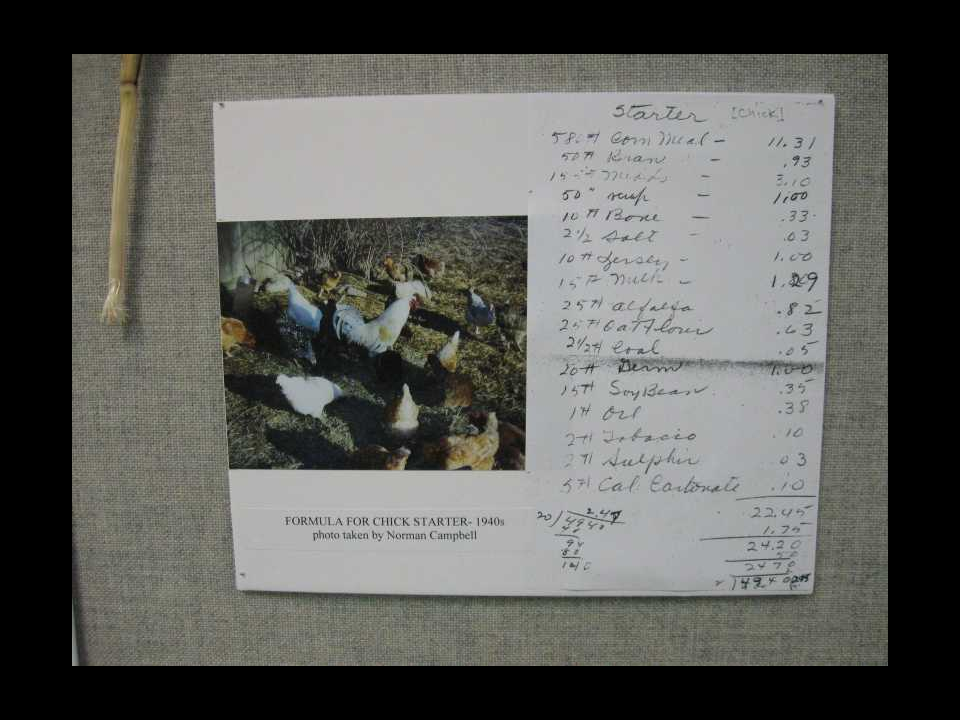 Starter [Chick]
580# Corn Meal - 11.31
50# Bran - .93
Midds - 3.10
50 " - 1.00
10# Bone - .33
2 1/2 Salt - .03
10# Jersey - 1.00
15# Milk - 1.29
25# alfalfa .82
25# Oat Flour .63
2 1/2# Coal .05
20# Germ 1.00
15# Soy Bean .35
1# Oil .38
2# Tobacco .10
2# Sulphir 03
5# Cal. Carbonate .10
22.45
1.75
24.20
50
24 70
20) 49 40 2.47
FORMULA FOR CHICK STARTER- 1940s
photo taken by Norman Campbell